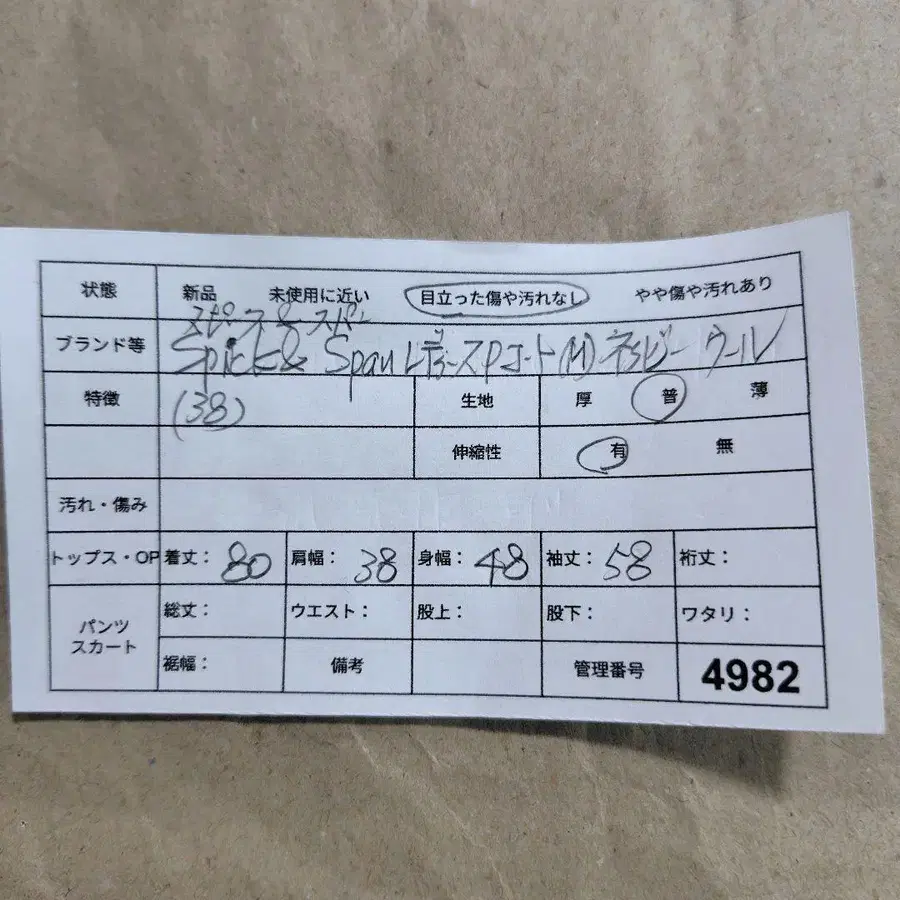 状態 新品 未使用に近い 目立った傷や汚れなし やや傷や汚れあり
スピック&スパン
ブランド等 Spick & Span レディースPコート(M)ネイビー ウール
特徴 (38) 生地 厚 普 薄
伸縮性 有 無
汚れ・傷み
トップス・OP 着丈: 80 肩幅: 38 身幅: 48 袖丈: 58 裄丈:
パンツ スカート 総丈: ウエスト: 股上: 股下: ワタリ:
裾幅: 備考 管理番号 4982